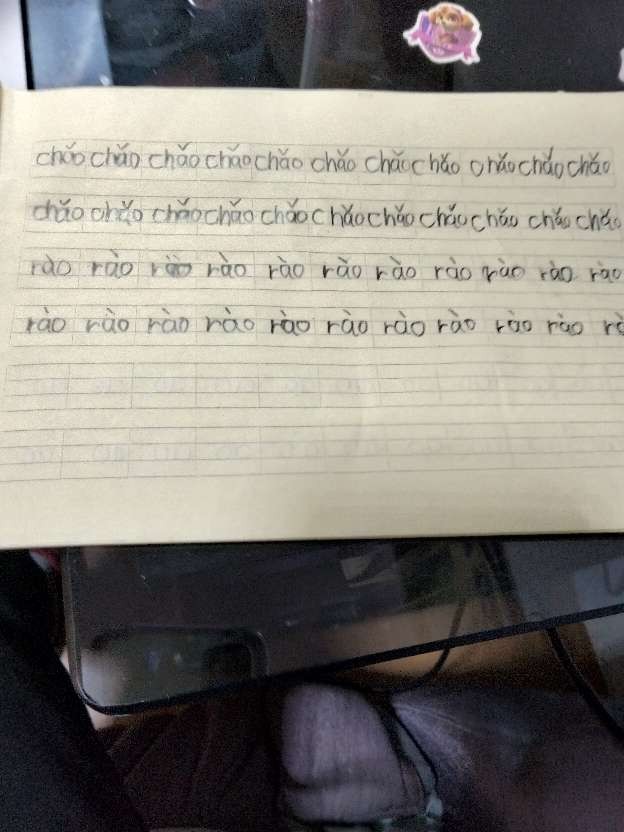 chǎo chǎo chǎo chǎo chǎo chǎo chǎo chǎo chǎo chǎo chǎo
chǎo chǎo chǎo chǎo chǎo chǎo chǎo chǎo chǎo chǎo chǎo
rào rào rào rào rào rào rào rào rào rào rào
rào rào rào rào rào rào rào rào rào rào